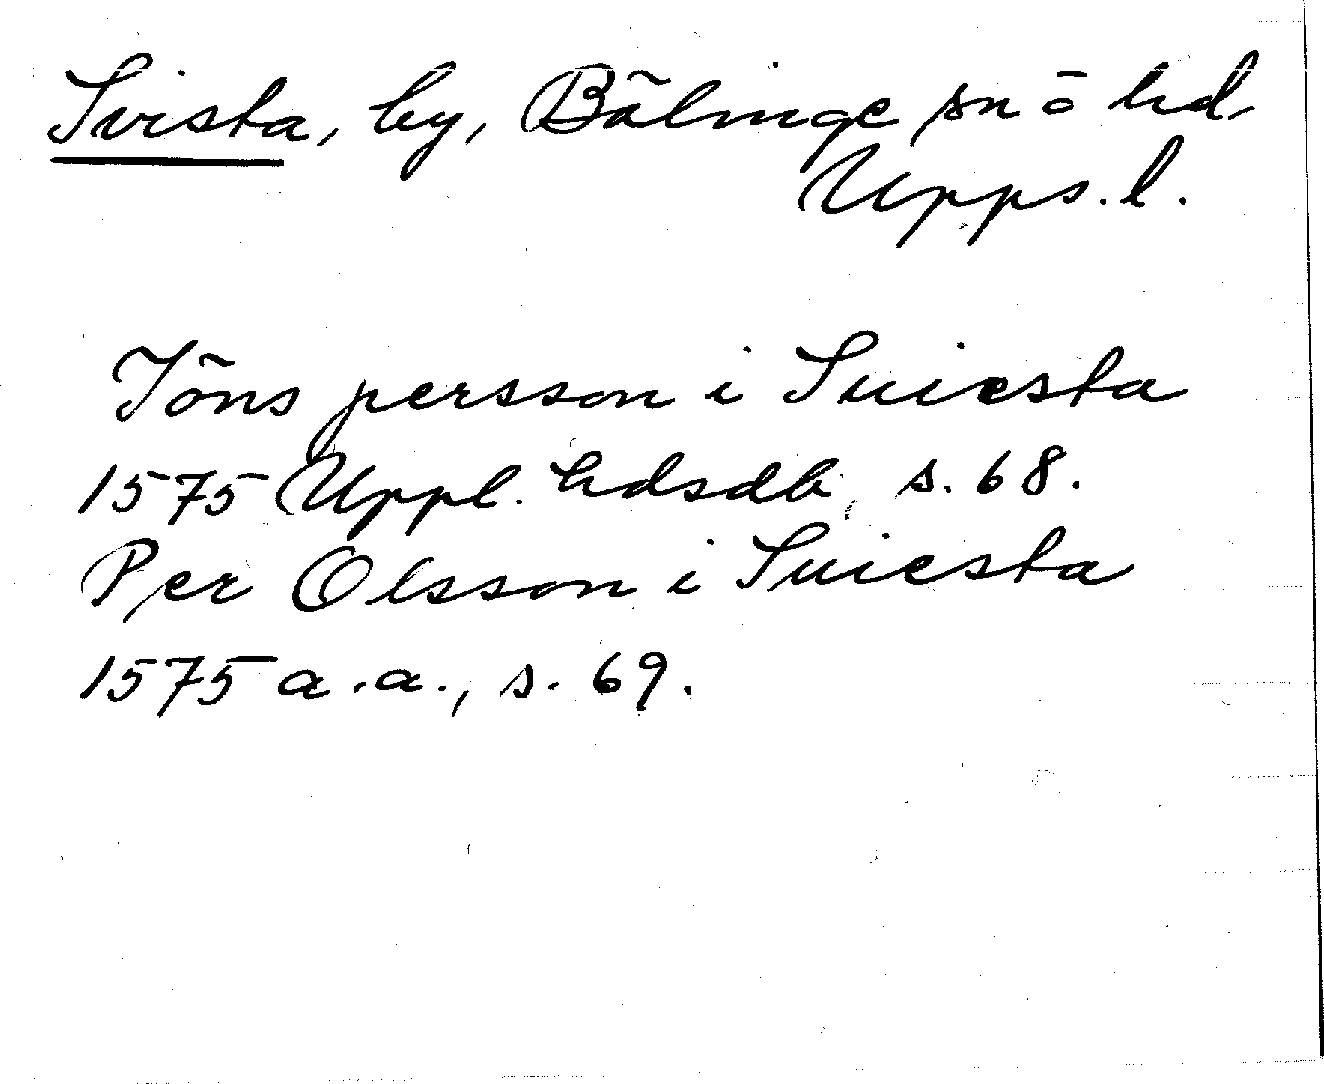 Svista, by, Bälinge sn ō hd,
Upps. l.
Jöns persson i Suiesta
1575 Uppl. hdsdb, s. 68.
Per Olsson i Suiesta
1575 a.a., s. 69.